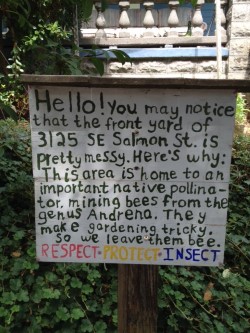 Hello! You may notice
that the front yard of
3125 SE Salmon St. is
pretty messy. Here's why:
This area is home to an
important native pollina-
tor, mining bees from the
genus Andrena. They
make gardening tricky,
so we leave them bee.
RESPECT • PROTECT • INSECT